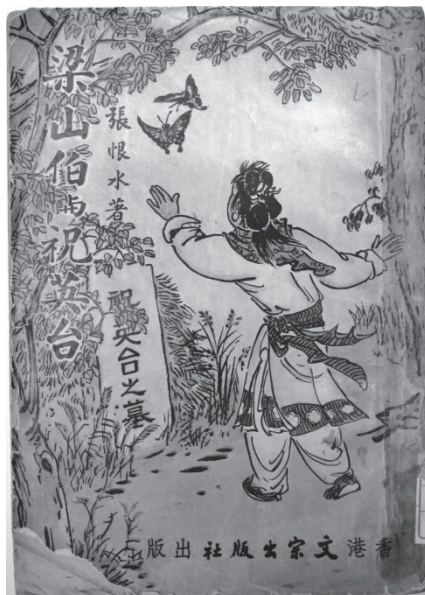 梁山伯与祝英台
張恨水著
祝英台之墓
香港文宗出版社出版